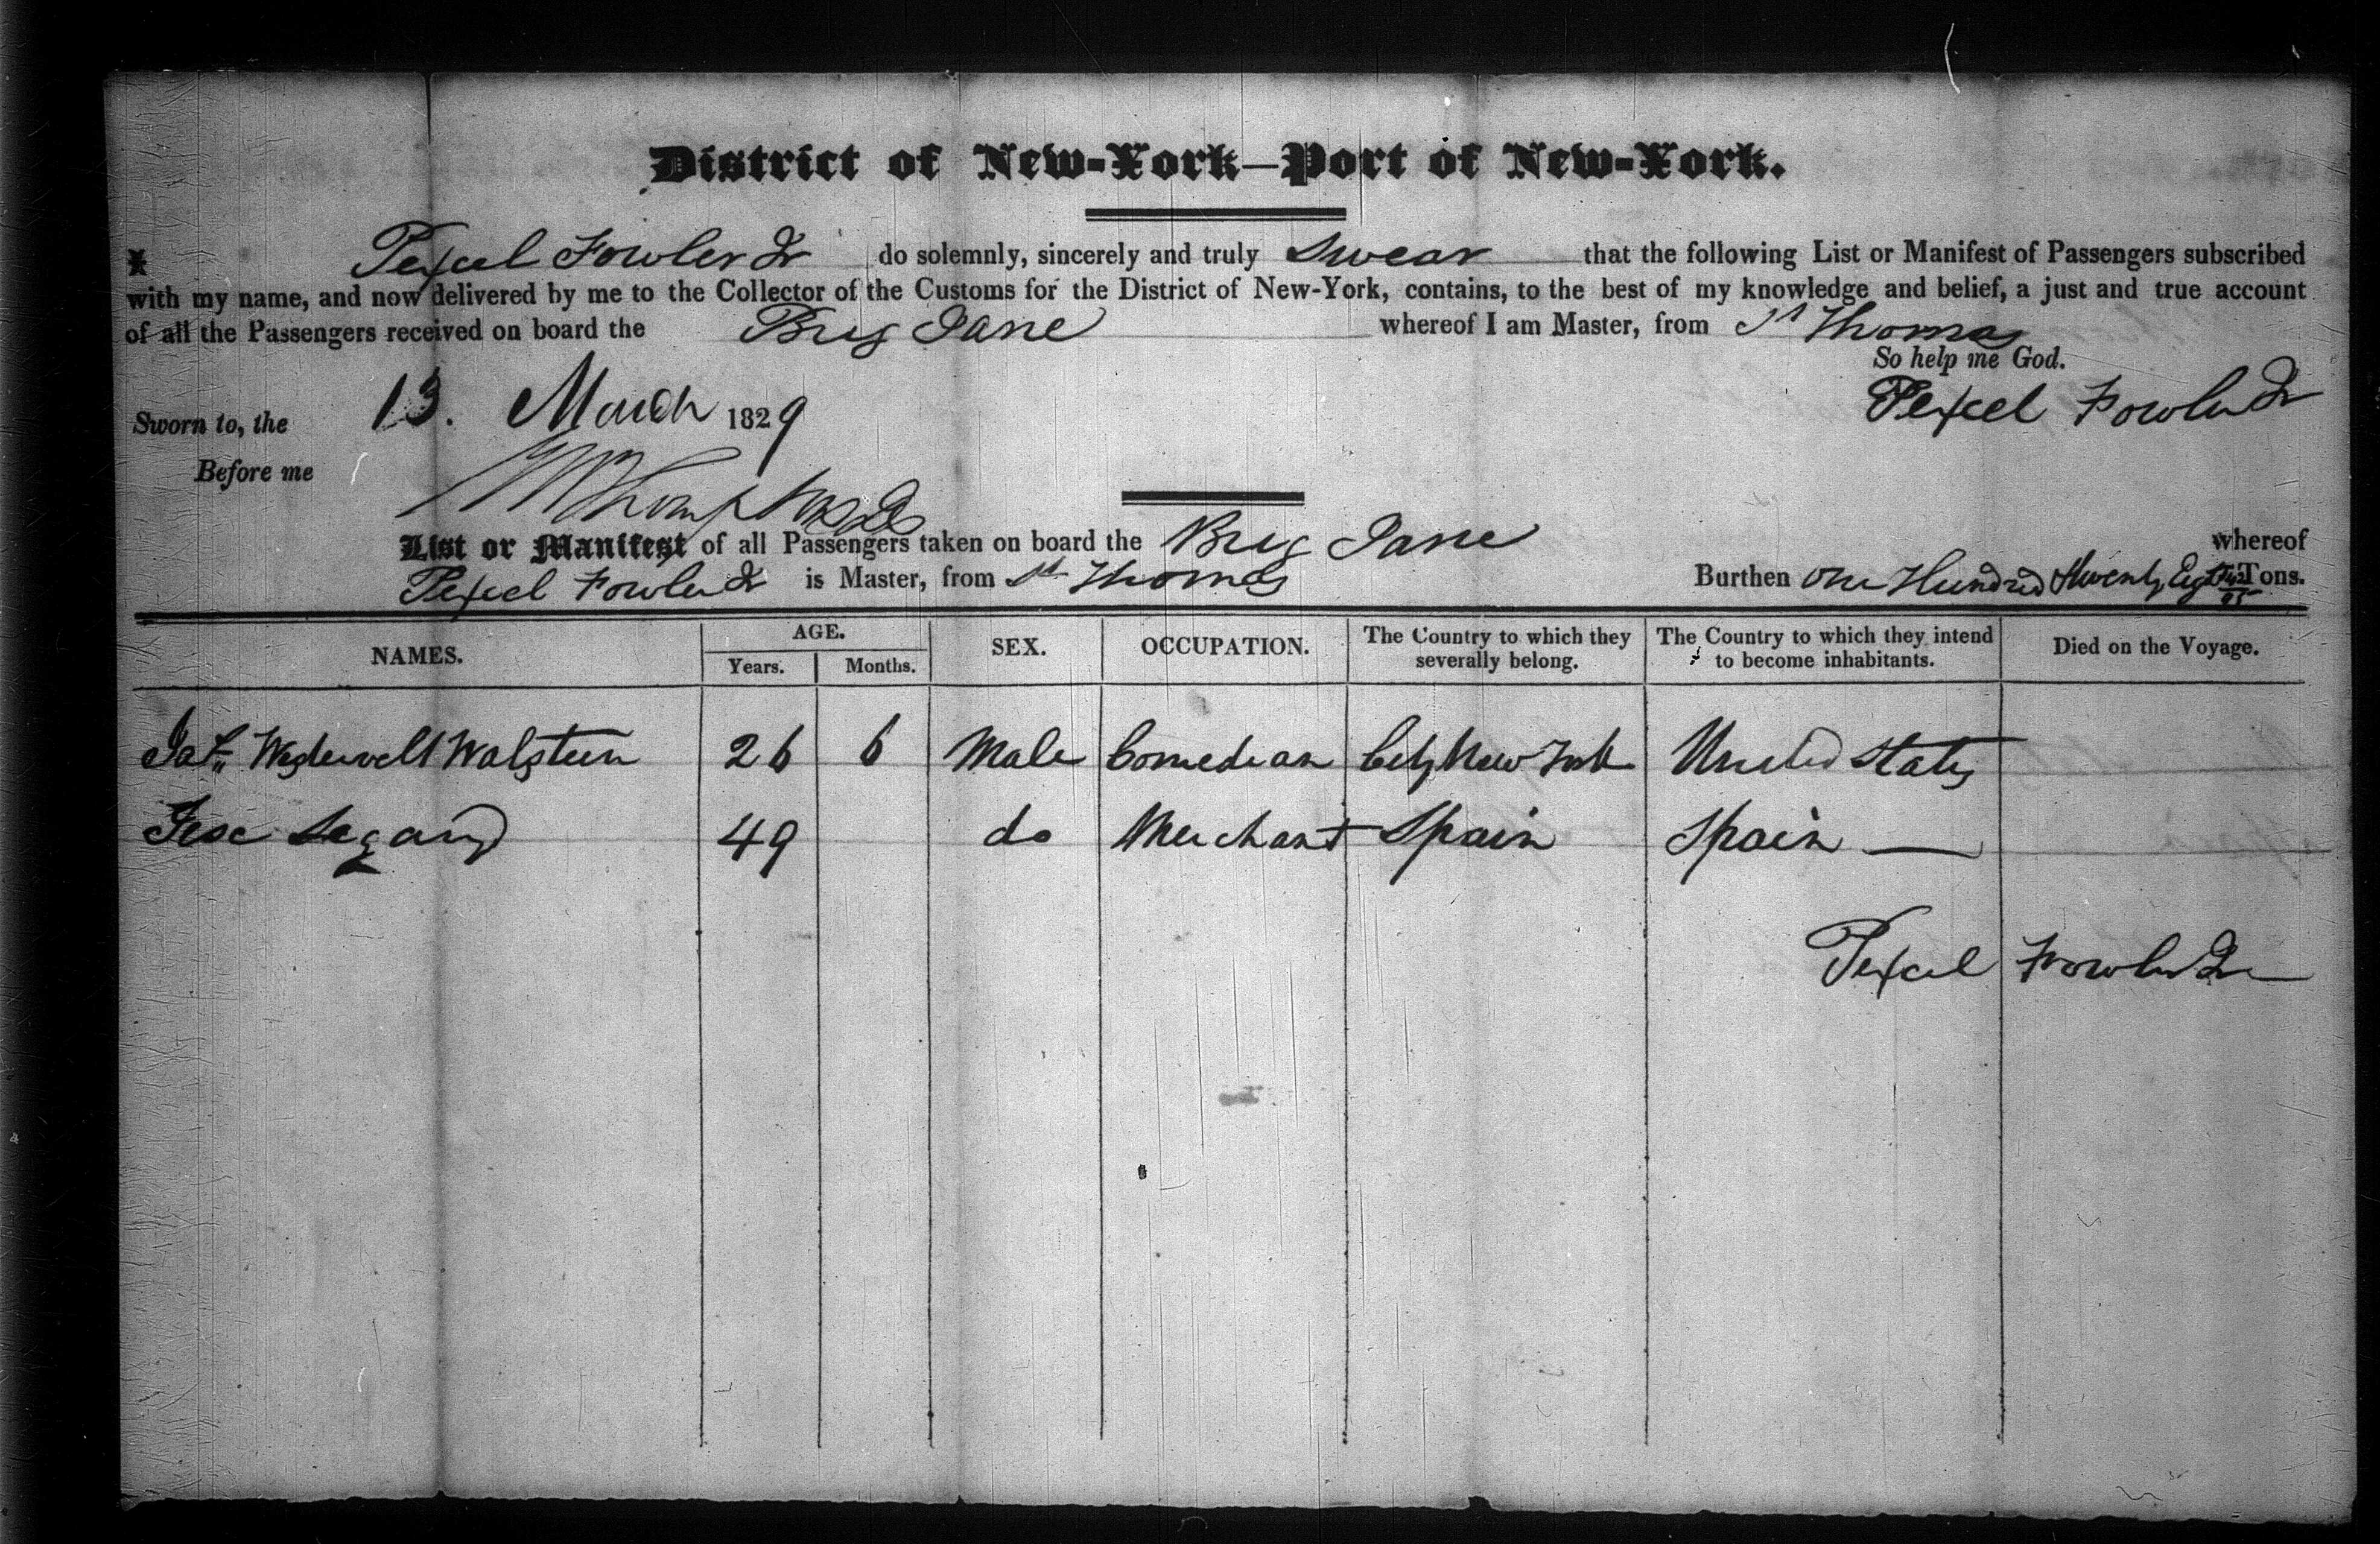 District of New-York—Port of New-York.
I Pexcel Fowler Jr do solemnly, sincerely and truly Swear that the following List or Manifest of Passengers subscribed
with my name, and now delivered by me to the Collector of the Customs for the District of New-York, contains, to the best of my knowledge and belief, a just and true account
of all the Passengers received on board the Brig Jane whereof I am Master, from St Thomas
So help me God.
Pexcel Fowler Jr
Sworn to, the 13. March 1829
Before me
List or Manifest of all Passengers taken on board the Brig Jane whereof
Pexcel Fowler Jr is Master, from St Thomas Burthen One Hundred Twenty Eight Tons.
NAMES. AGE. Years. Months. SEX. OCCUPATION. The Country to which they severally belong. The Country to which they intend to become inhabitants. Died on the Voyage.
Walsteen 26 6 Male Comedian City New York United States
49 do Merchant Spain Spain —
Pexcel Fowler Jr